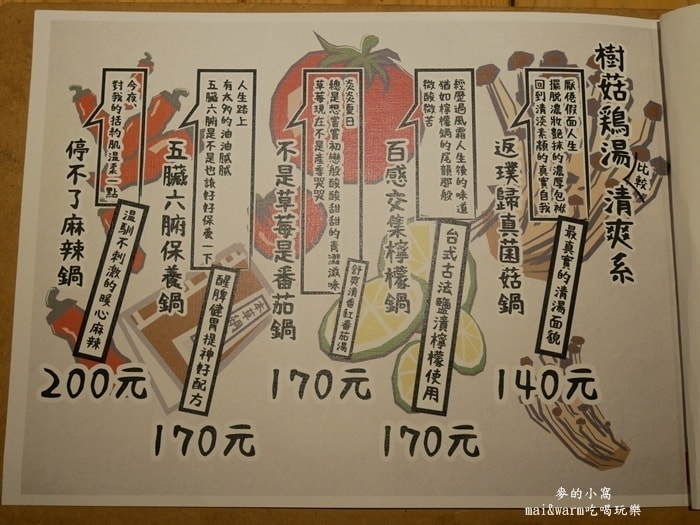 樹菇鶏湯 比較 清爽系
厭倦假面人生
擺脫濃妝艷抹的濃厚包袱
回到清淡素顏的真實自我
返璞歸真菌菇鍋
最真實的清湯面貌
140元
經歷過風霜人生後的味道
猶如檸檬鍋的尾韻那般
微酸微苦
百感交集檸檬鍋
台式古法鹽漬檸檬使用
170元
炎炎夏日
總是想嘗嘗初戀般酸酸甜甜的青澀滋味
草莓現在不是產季哭哭
不是草莓是番茄鍋
舒爽清香紅番茄湯
170元
人生路上
有太多的油油膩膩
五臟六腑是不是也該好好保養一下
五臟六腑保養鍋
醒脾健胃提神好配方
本草綱
170元
今夜、
對我的括約肌溫柔一點
停不了麻辣鍋
溫馴不刺激的暖心麻辣
200元
麥的小窩
mai&warm吃喝玩樂